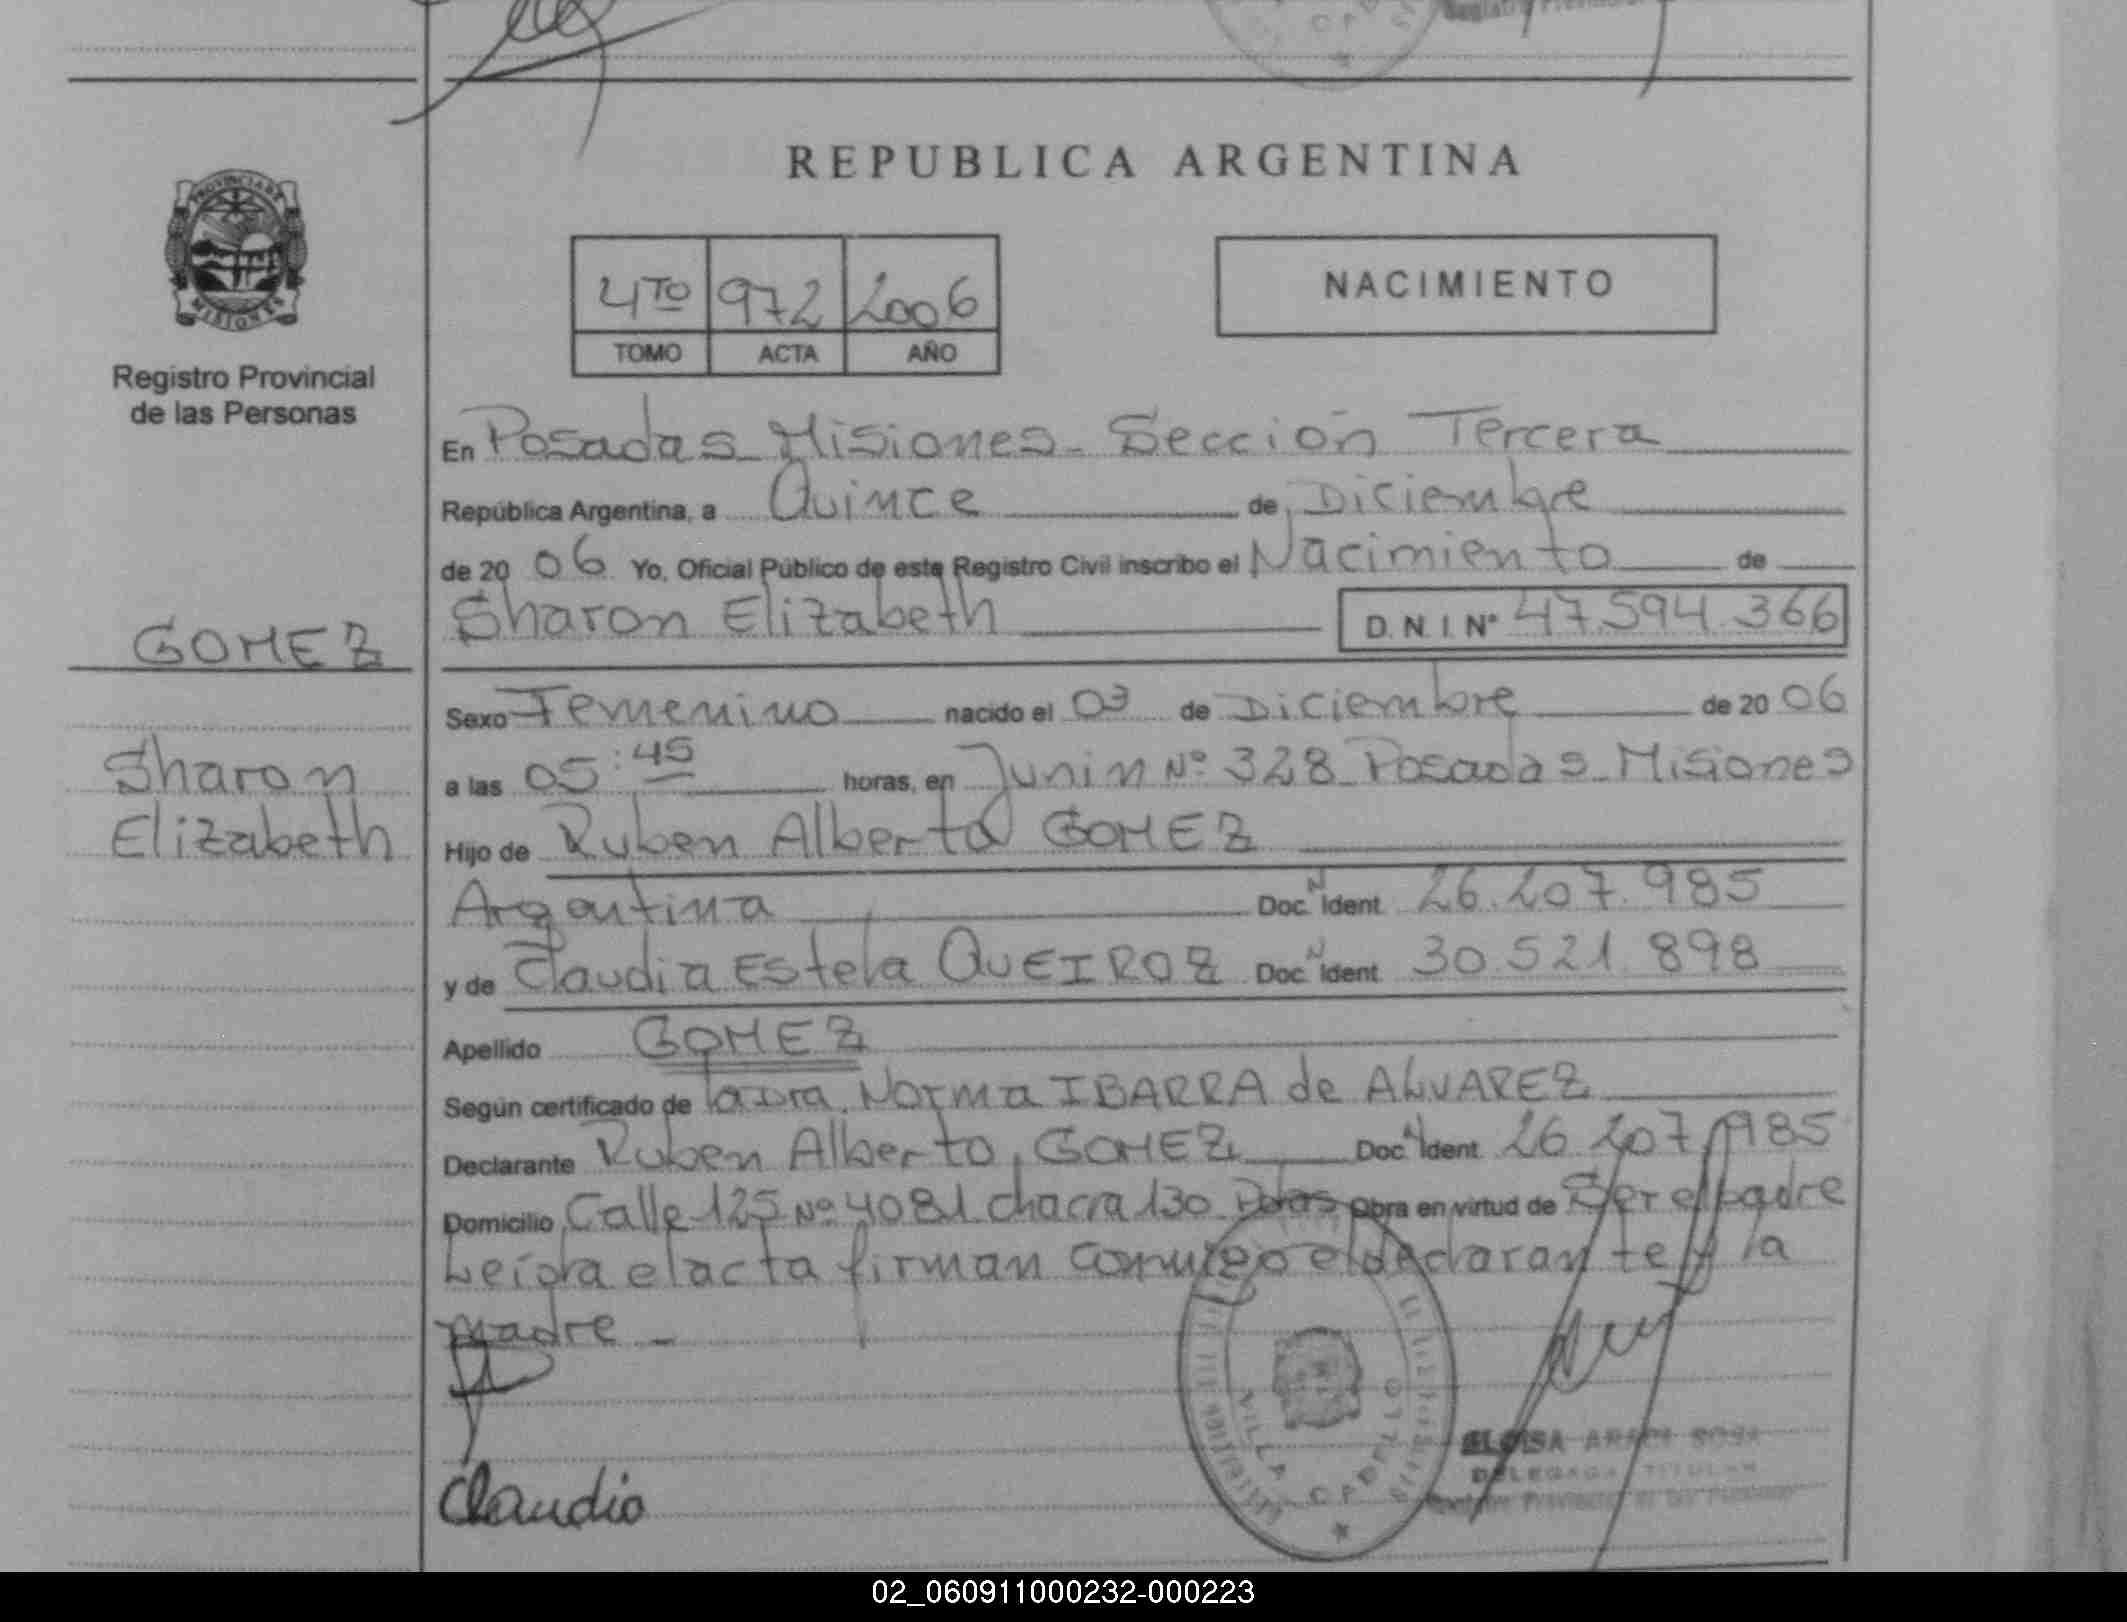 REPUBLICA ARGENTINA
PROVINCIA DE
MISIONES
Registro Provincial
de las Personas
4TO 972 2006
TOMO ACTA AÑO
NACIMIENTO
GOMEZ
Sharon
Elizabeth
En Posadas Misiones - Sección Tercera
República Argentina, a Quince de Diciembre
de 20 06 Yo, Oficial Público de este Registro Civil inscribo el Nacimiento de
Sharon Elizabeth D.N.I. Nº 47.594.366
Sexo Femenino nacido el 03 de Diciembre de 20 06
a las 05:45 horas, en Junin Nº 328 Posadas - Misiones
Hijo de Ruben Alberto GOMEZ
Argentina Doc. N Ident. 26.207.985
y de Claudia Estela QUEIROZ Doc. N Ident. 30.521.898
Apellido GOMEZ
Según certificado de la Dra. Norma IBARRA de ALVAREZ
Declarante Ruben Alberto GOMEZ Doc. N Ident. 26.207.985
Domicilio Calle 125 Nº 4081 chacra 130 Pdas Obra en virtud de Ser el padre
Leida el acta firman conmigo el declarante y la
madre -
Claudia
VILLA
ELOISA ARACI SOSA
DELEGADA TITULAR
02_060911000232-000223